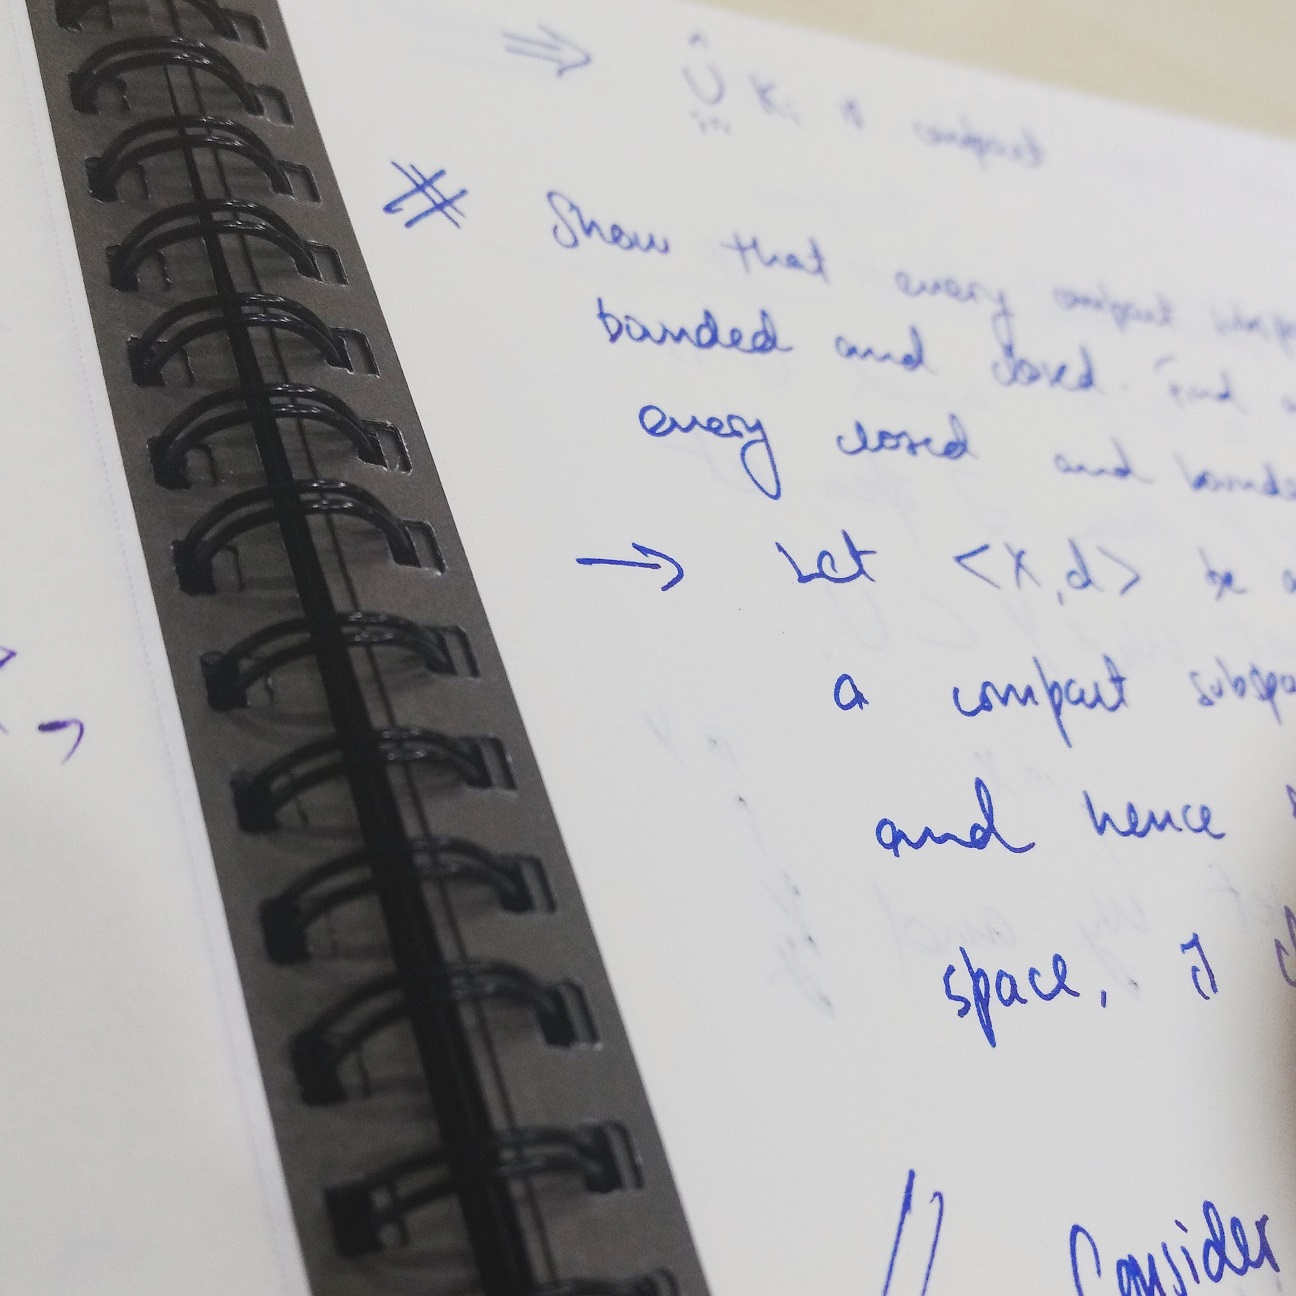 ⇒ ∪ Kᵢ is compact
# Show that every compact
bounded and closed. Find a
every closed and
→ Let <X,d> be a
a compact
and hence
space, if
// Consider